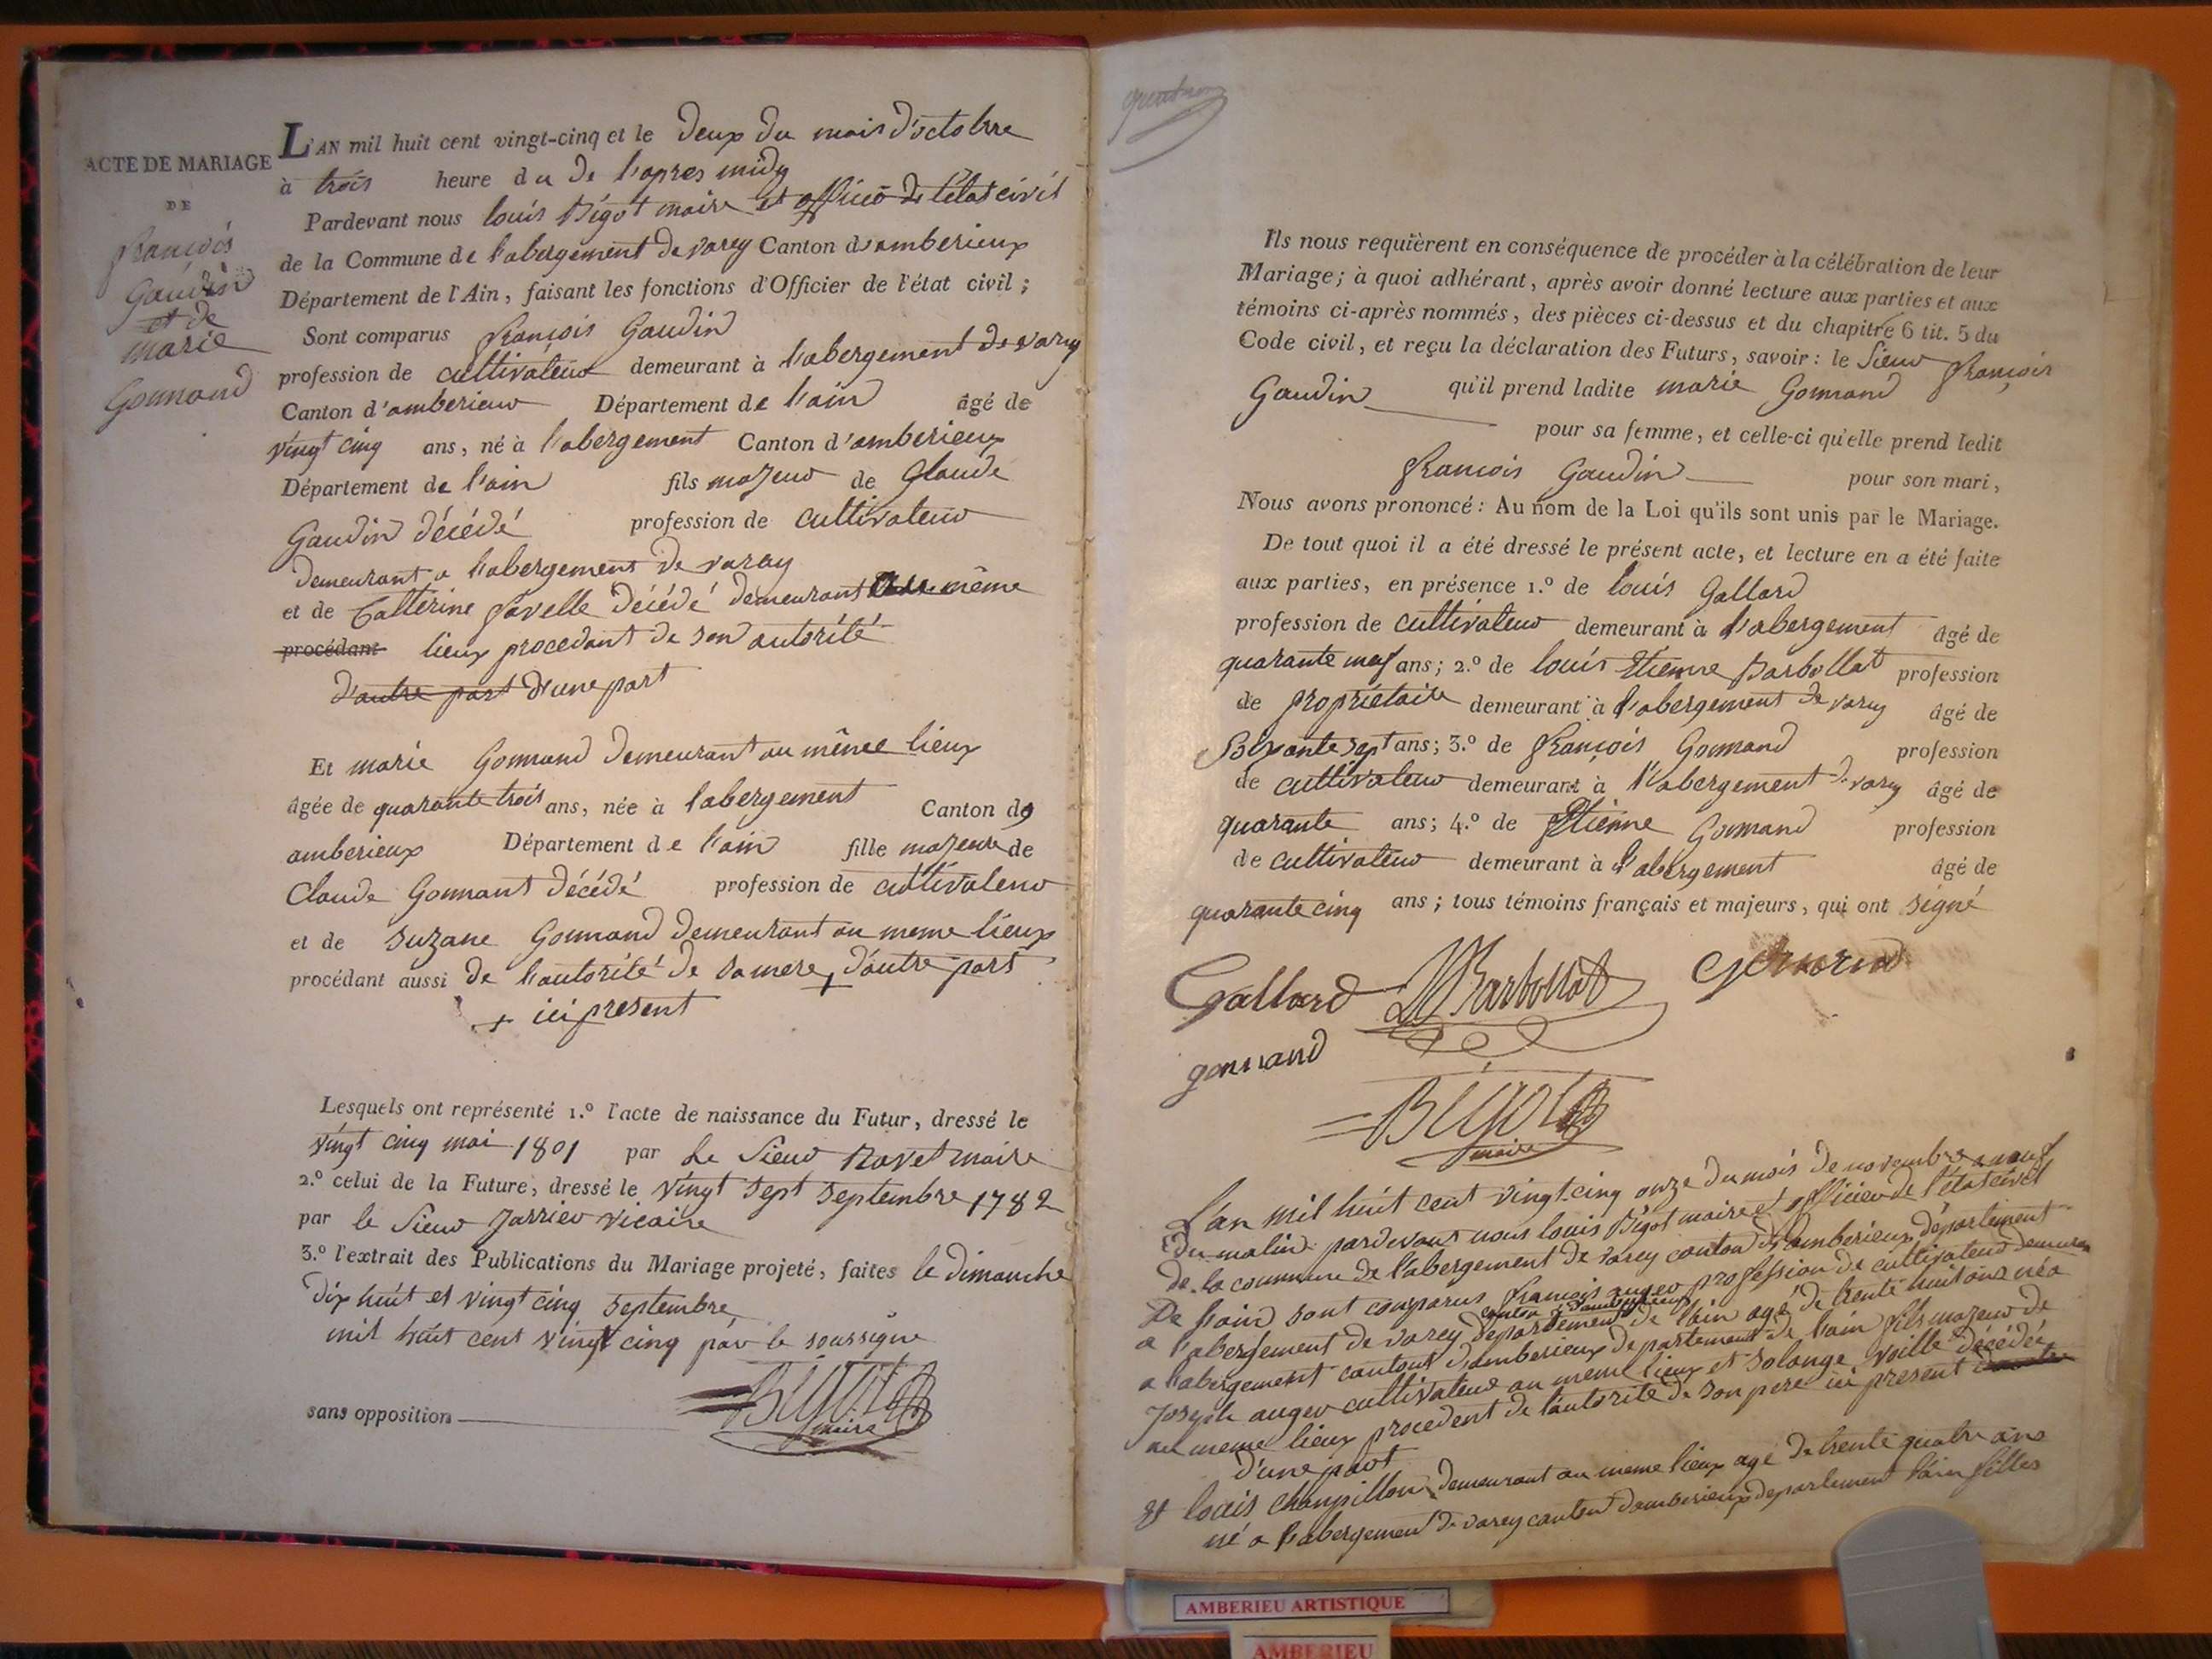 ACTE DE MARIAGE
DE
françois
Gaudin
et de
marie
Gonnand
L'AN mil huit cent vingt-cinq et le deux du mois d'octobre
à trois heure du de l'apres midy
Pardevant nous louis Bigot maire et officié de l'état civil
de la Commune de l'abergement de varey Canton d'amberieux
Département de l'Ain, faisant les fonctions d'Officier de l'état civil ;
Sont comparus françois Gaudin
profession de cultivateur demeurant à l'abergement de varey
Canton d'amberieux Département de l'ain âgé de
vingt cinq ans, né à l'abergement Canton d'amberieux
Département de l'ain fils majeur de Claude
Gaudin décédé profession de cultivateur
demeurant a l'abergement de varay
et de Catterine favelle décédé demeurant même
procédant lieux procedant de son autorité
d'autre part d'une part
Et marie Gonnand demeurant au même lieux
âgée de quarante trois ans, née à l'abergement Canton d
amberieux Département de l'ain fille majeure de
Claude Gonnant décédé profession de cultivateur
et de suzane Gonnand demeurant au meme lieux
procédant aussi de l'autorité de sa mere + d'autre part
+ ici present
Lesquels ont représenté 1.º l'acte de naissance du Futur, dressé le
vingt cinq mai 1801 par Le Sieur Navet maire
2.º celui de la Future, dressé le vingt sept septembre 1782
par le Sieur Jarrier vicaire
3.º l'extrait des Publications du Mariage projeté, faites le dimanche
dix huit et vingt cinq septembre
mil huit cent vingt cinq par le soussigné
sans opposition
BIGOT
maire
Ils nous requièrent en conséquence de procéder à la célébration de leur
Mariage ; à quoi adhérant, après avoir donné lecture aux parties et aux
témoins ci-après nommés, des pièces ci-dessus et du chapitre 6 tit. 5 du
Code civil, et reçu la déclaration des Futurs, savoir : le Sieur françois
Gaudin qu'il prend ladite marie Gonnand
pour sa femme, et celle-ci qu'elle prend ledit
francois Gaudin pour son mari,
Nous avons prononcé : Au nom de la Loi qu'ils sont unis par le Mariage.
De tout quoi il a été dressé le présent acte, et lecture en a été faite
aux parties, en présence 1.º de louis Gallard
profession de cultivateur demeurant à l'abergement âgé de
quarante neuf ans ; 2.º de louis Etienne Barbollat profession
de propriétaire demeurant à l'abergement de varey âgé de
soixante sept ans ; 3.º de françois Gonnand profession
de cultivateur demeurant à l'abergement de varey âgé de
quarante ans ; 4.º de Etienne Gonnand profession
de cultivateur demeurant à l'abergement âgé de
quarante cinq ans ; tous témoins français et majeurs, qui ont signé
Gallard Barbollat
gonnand
BIGOT
maire
L'an mil huit cent vingt-cinq onze du mois de novembre a neuf
du matin pardevant nous louis Bigot maire et officier de l'état civil
de la commune de l'abergement de varey canton d'amberieux département
De l'ain sont comparus francois auger profession de cultivateur demeuran
canton d'amberieux
a l'abergement de varey departement de l'ain agé de trente huit ans né a
a l'abergement cantont d'amberieux departement de l'ain fils majeur de
Joseph auger cultivateur au meme lieux et solange decédée
au meme lieux procedent de l'autorité de son pere ici present
d'une part
et louis Champillon demeurant au meme lieux agé de trente quatre ans
né a l'abergement de varey canton d'amberieux departement l'ain filles
AMBERIEU ARTISTIQUE
AMBERIEU